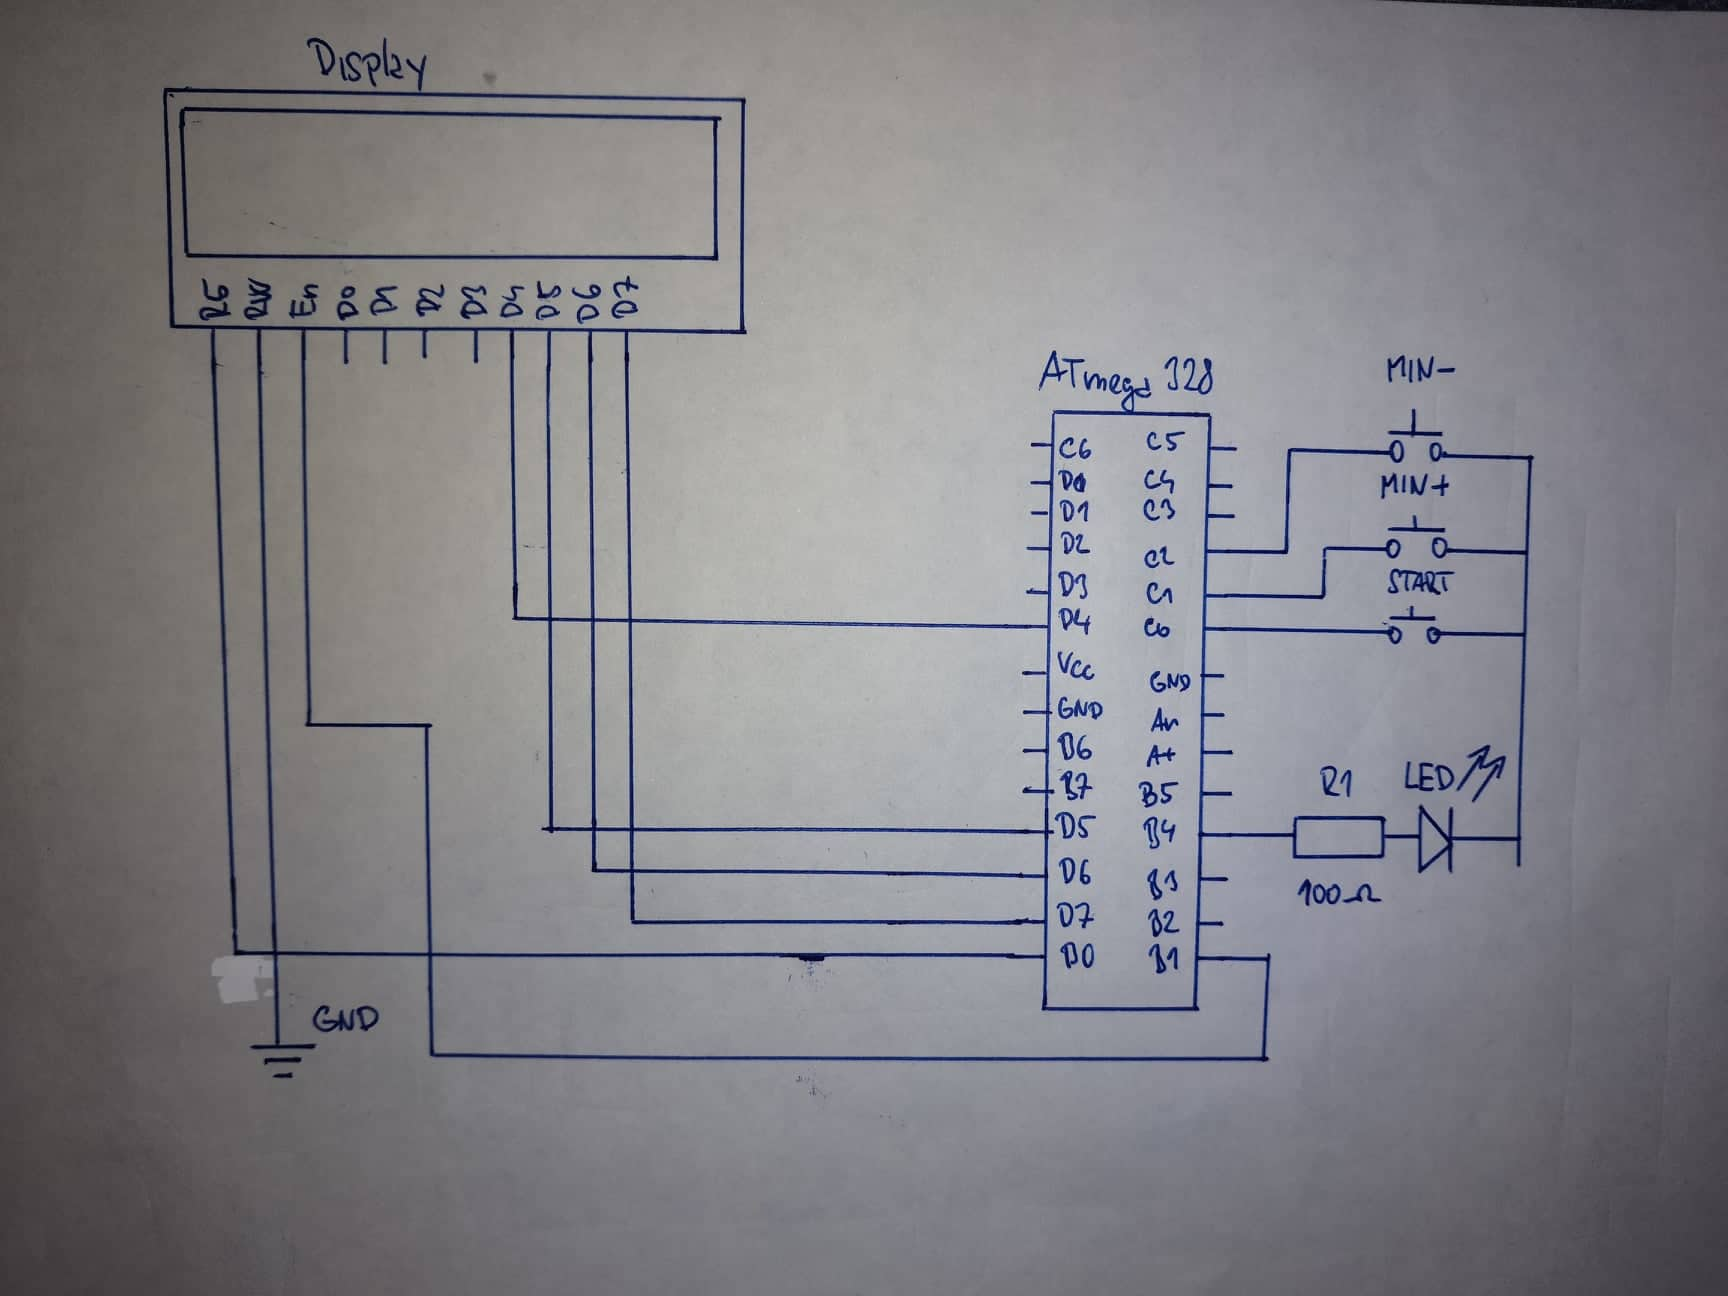 Display
RS
RW
En
D0
D1
D2
D3
D4
D5
D6
D7
ATmega 328
C6
D0
D1
D2
D3
D4
Vcc
GND
B6
B7
D5
D6
D7
B0
C5
C4
C3
C2
C1
C0
GND
Ar
A+
B5
B4
B3
B2
B1
MIN-
MIN+
START
R1
100Ω
LED
GND